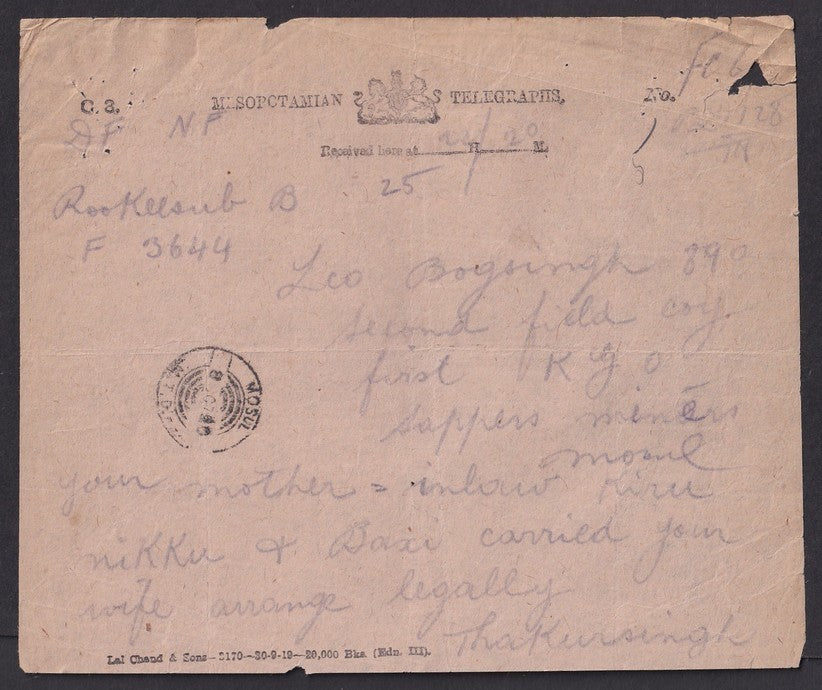 C. 3. MESOPOTAMIAN TELEGRAPHS. No.
DF NF
Received here at H. 20 M.
25
Rookeesub B
F 3644
Leo Bogsingh 890
second field coy
first K G O
Sappers miners
mosul
MOSUL
your mother = inlaw Kiru
nikku & Baxi carried your
wife arrange legally
Thakursingh
Lal Chand & Sons—3170—30-9-19—20,000 Bks. (Edn. III).